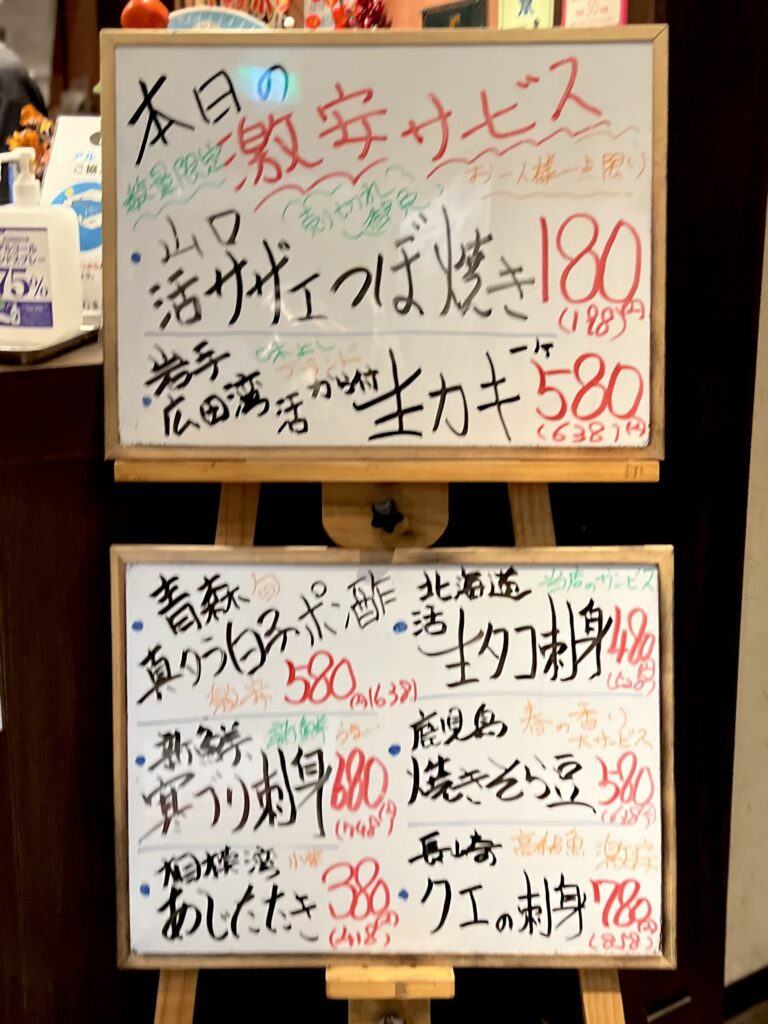 本日の
激安サービス
数量限定
売り切れ御免
お一人様一点限り
山口
活サザエつぼ焼き 180
(198)円
岩手
広田湾 活 から付 生カキ 一ケ 580
(638)円
青森 旬
真タラ白子ポン酢
激安 580円(638)
新鮮 新鮮
寒ブリ刺身 680
(748)円
相模湾
あじたたき 380
(418)円
北海道 当店のサービス
活
生タコ刺身 480円
(528)
鹿児島 春の香り
大サービス
焼きそら豆 580
(638)円
長崎 高級魚 激安
クエの刺身 780円
(858)
75%